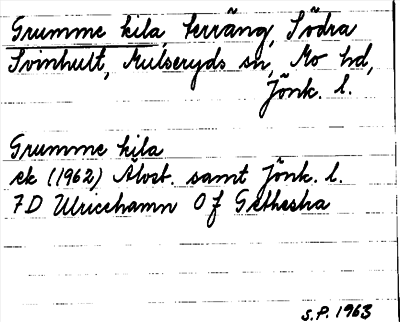 Grumme kila, terräng, Södra
Svinhult, Mulseryds sn, Mo hd,
Jönk. l.
Grumme kila
ek (1962) Älvsb. samt Jönk. l.
7D Ulricehamn 0f Grthesha
S.P. 1963